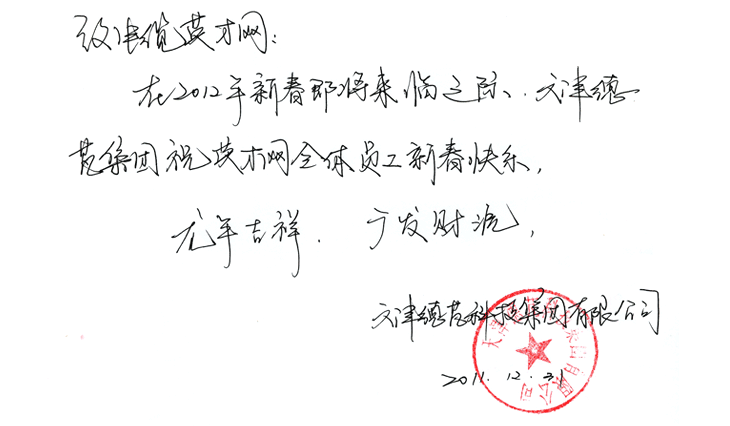 致电缆英才网:
在2012年新春即将来临之际、天津德
芭集团祝英才网全体员工新春快乐,
龙年吉祥. 广发财源,
天津德芭科技集团有限公司
2011.12.31